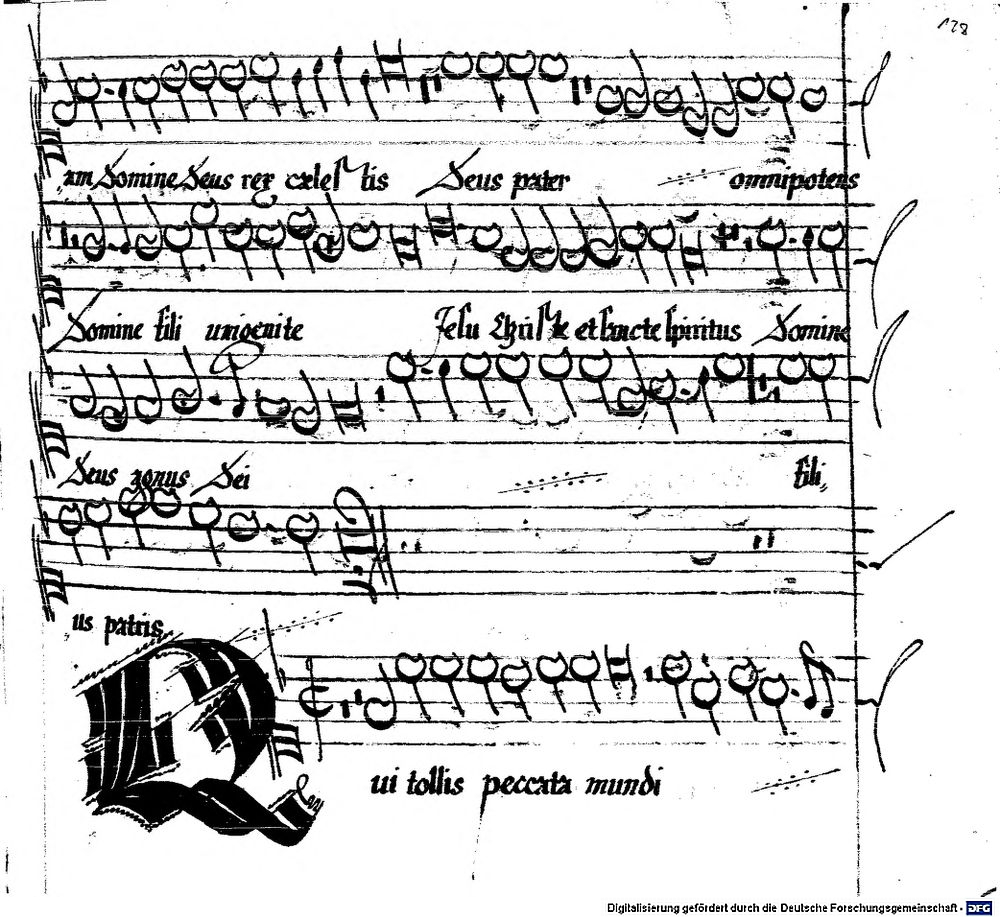 128
am Domine Deus rex cælestis Deus pater omnipotens
Domine fili unigenite Jesu Christe et sancte spiritus Domine
Deus agnus Dei fili,
us patris
Qui tollis peccata mundi
Digitalisierung gefördert durch die Deutsche Forschungsgemeinschaft - DFG